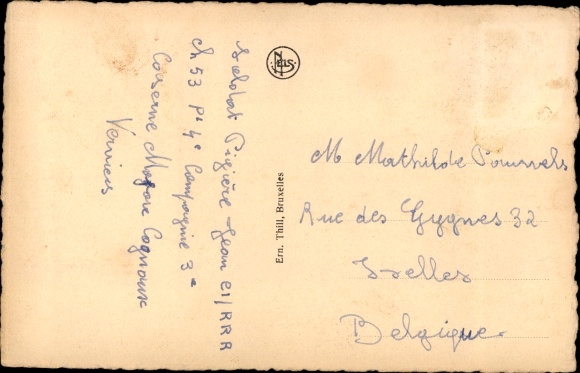 Soldat Pigière Jean Cl/RRR
Ch 53 Pt 4e Compagnie 3e
Caserne Major Cognoux
Verviers
Ern. Thill, Bruxelles
M Mathilde
Rue des Gygnes 32
Ixelles
Belgique